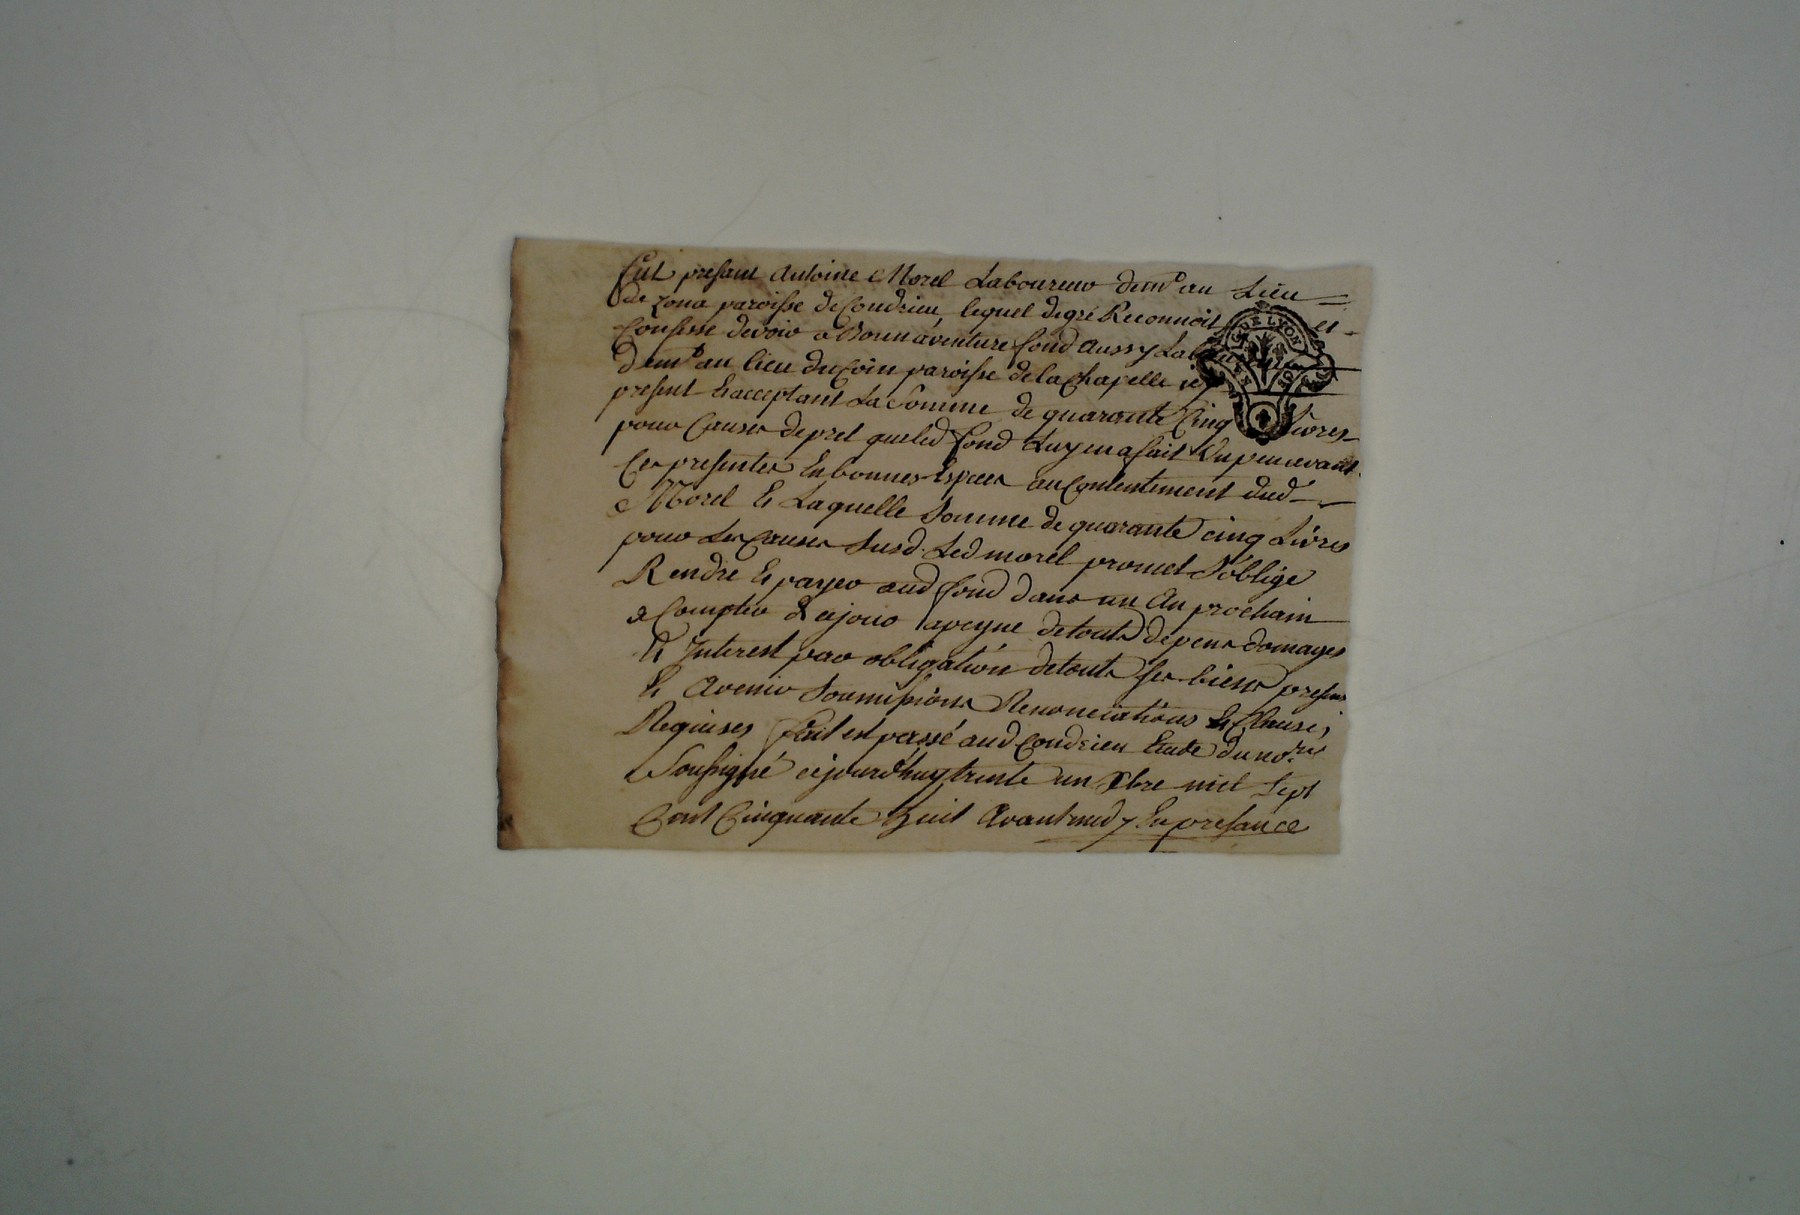 Fut present Antoine Morel Laboureur dem.t au Lieu
de Zona paroisse de Condrieu, lequel de gré Reconnoit et
Confesse devoir a Bonnaventure fond aussy
dem.t au lieu du Coin paroisse de la Chapelle icy
present & acceptant La Somme de quarante Cinq Livres
pour Causes de pret que led fond Luy en a fait un peu avant
Ces presentes En bonnes Especes au Contentement dud.
Morel & Laquelle Somme de quarante cinq Livres
pour Les Causes Susd. Led morel promet S'oblige
Rendre & payer aud fond dans un An prochain
a Compter de ce jour a peyne de touts depens domages
& Interest par obligation de touts ses biens presens
& Avenir Soumissions Renonciations & Clauses
Requises fait et passé aud Condrieu Etude du no.re
Soussigné ce jourd'huy trente un Xbre mil Sept
Cent Cinquante huit Avant midy En presance
GUE LYON